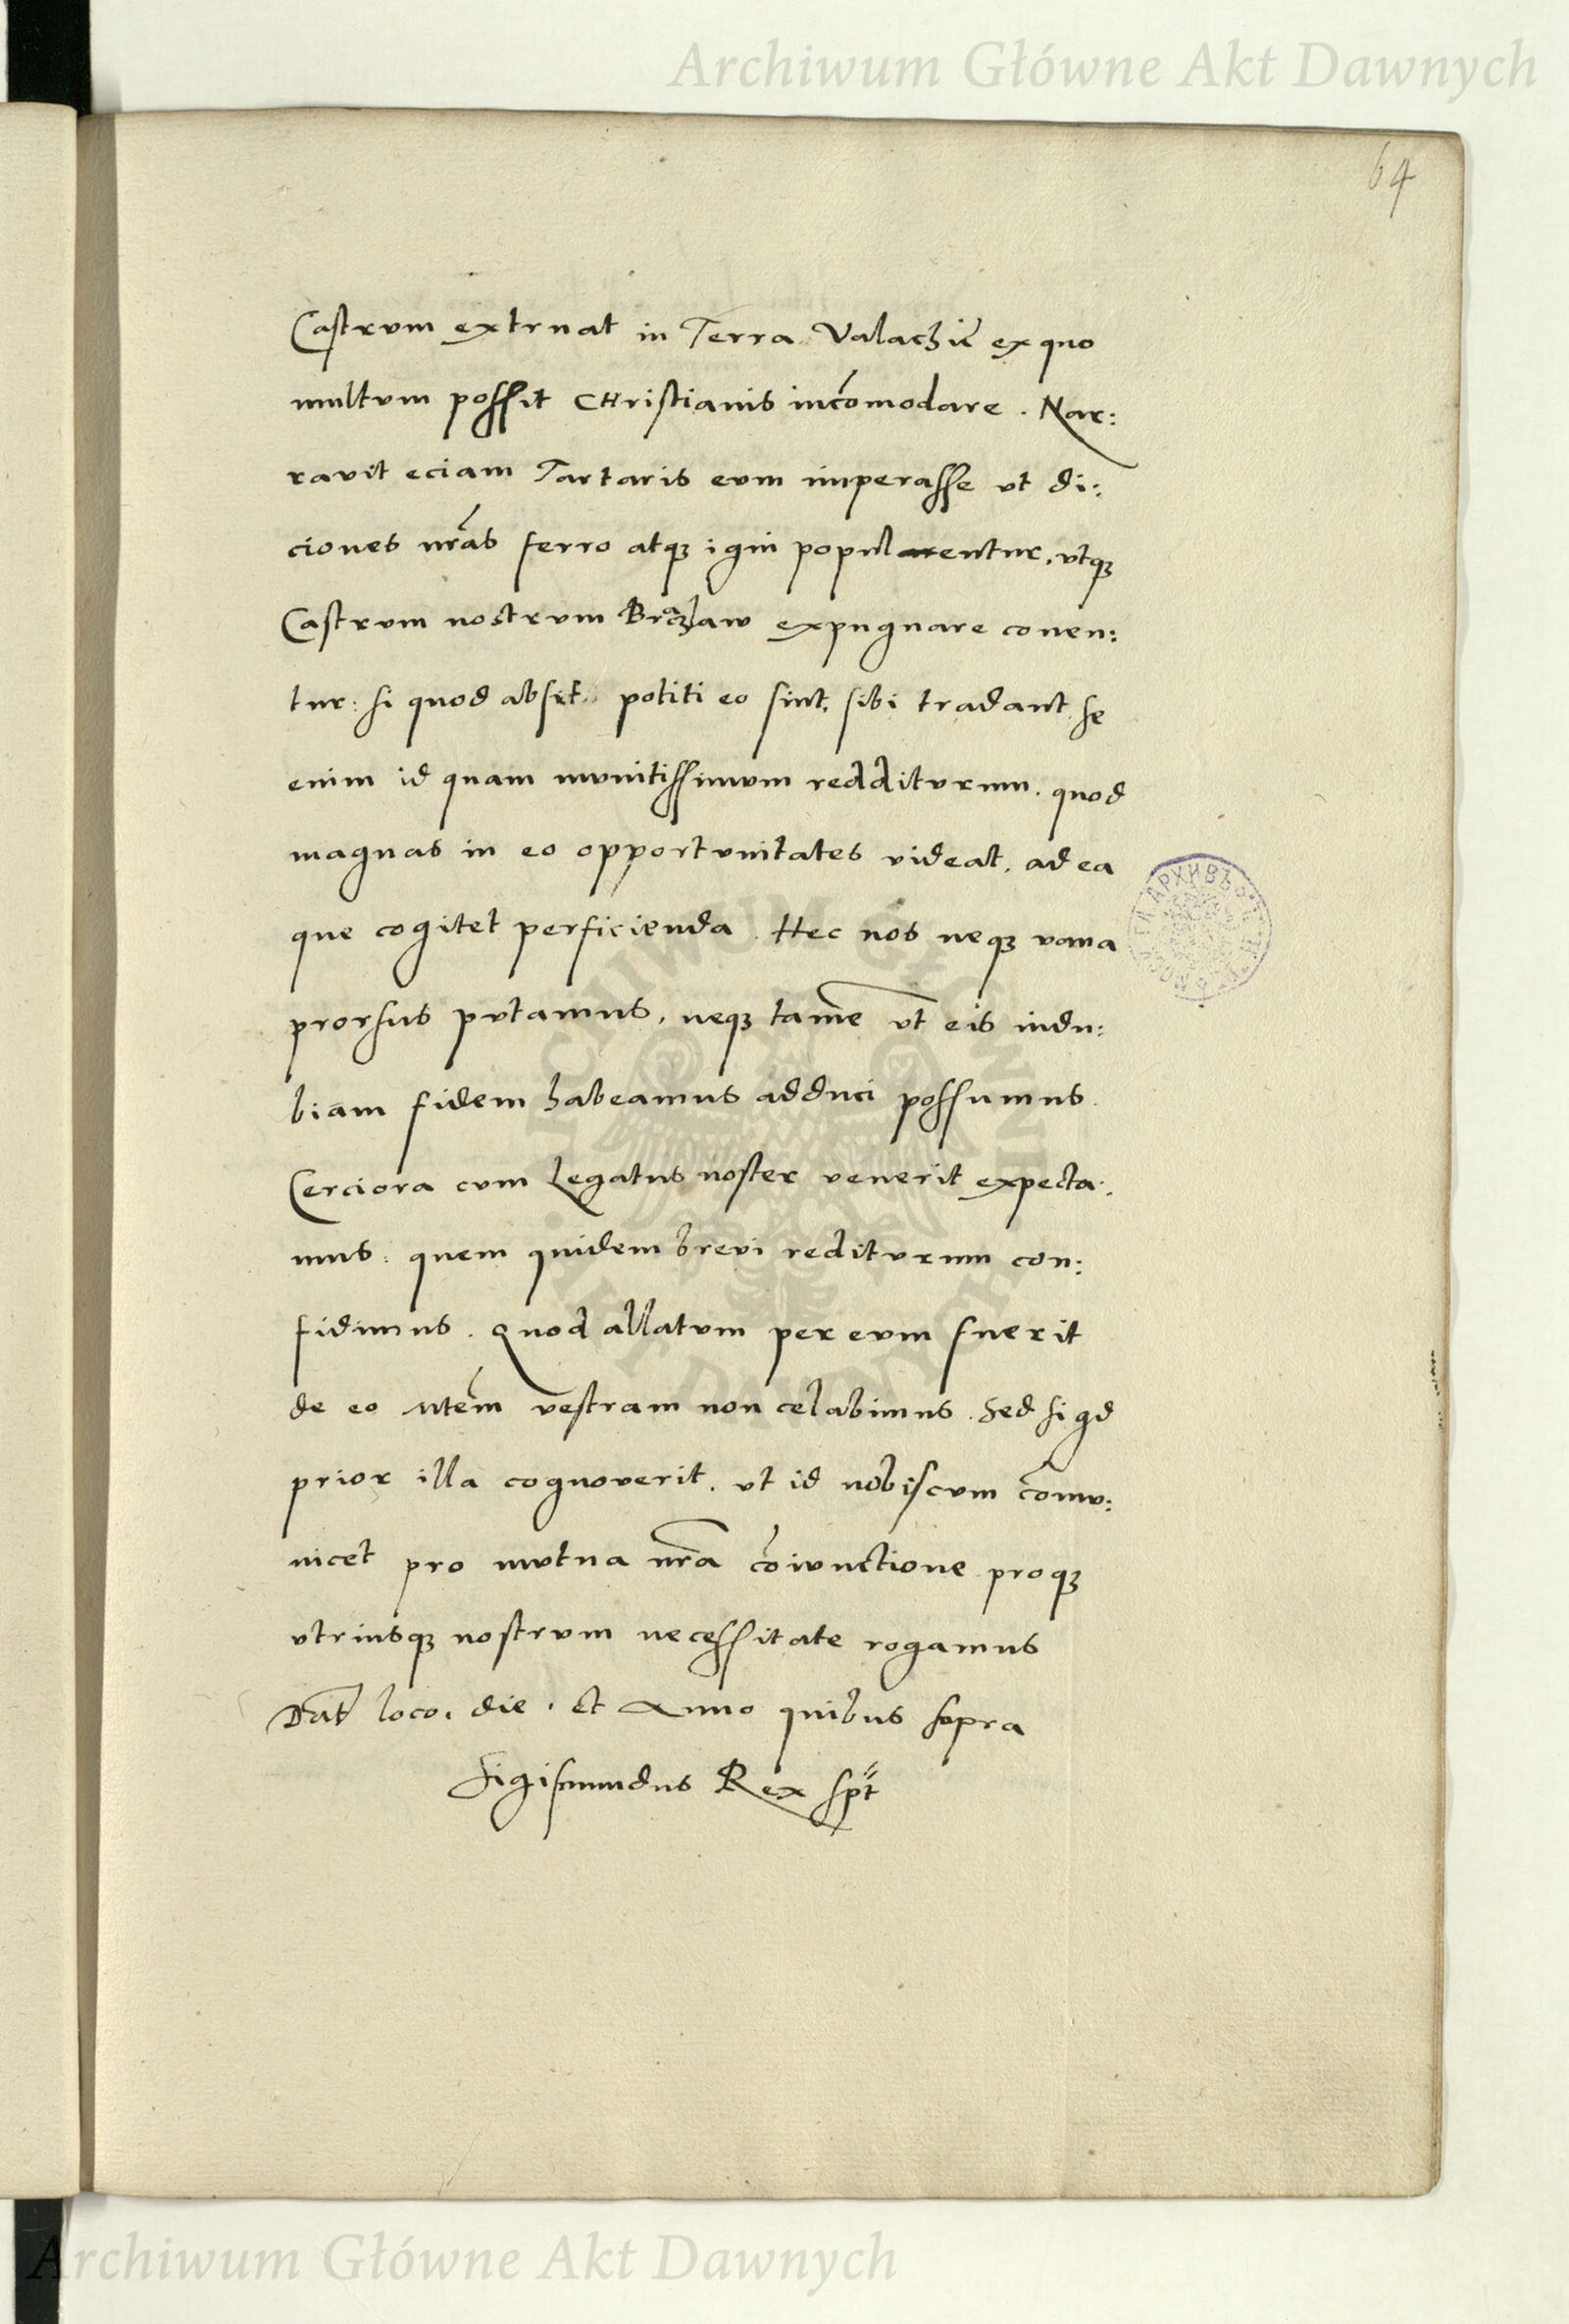 Archiwum Główne Akt Dawnych
64
Castrum extruat in Terra Valachie ex quo
multum possit CHristianis incomodare . Nar:
ravit eciam Tartaris eum imperasse ut di:
ciones nras ferro atq₃ igni populentur, utq₃
Castrum nostrum Braczlaw expugnare conen:
tur: si quod absit potiti eo sint, sibi tradant, se
enim id quam munitissimum redditurum. quod
magnas in eo opportunitates videat, ad ea
que cogitet perficienda. Hec nos neq₃ vana
prorsus putamus, neq₃ tame ut eis indu:
biam fidem habeamus adduci possumus.
Cerciora cum Legatus noster venerit expecta:
mus: quem quidem brevi rediturum con:
fidimus. Quod allatum per eum fuerit
de eo Mtem vestram non celabimus. Sed si qd
prior illa cognoverit, ut id nobiscum comu:
nicet pro mutua nra coiunctione proq₃
utriusq₃ nostrum necessitate rogamus
Dat loco, die, et Anno quibus supra
Sigismundus Rex spt
АРХИВЪ
Archiwum Główne Akt Dawnych